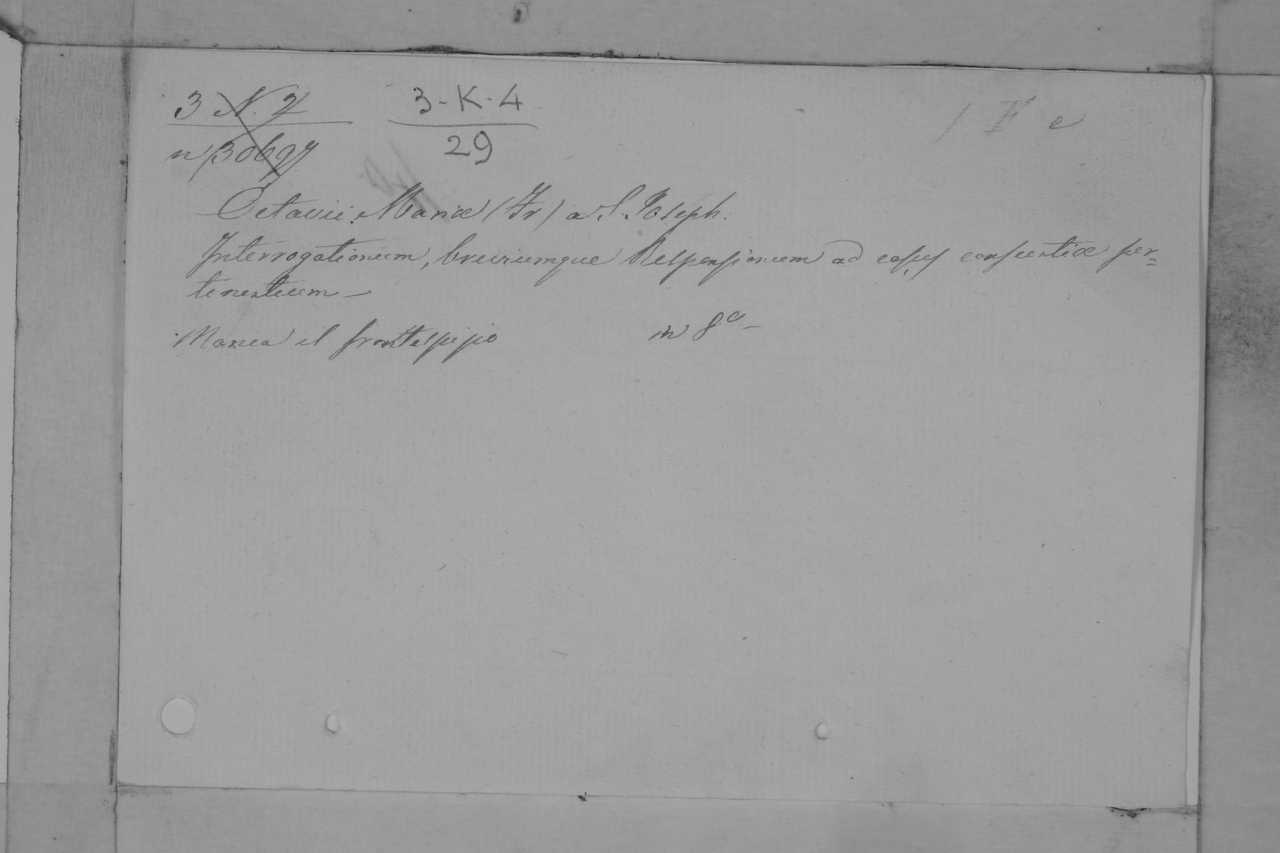 3 N. 2 3-K-4
n 30697 29
Octavii Mariæ (Fr) a S. Joseph.
Interrogationum, breviumque Responsionum ad casus conscientiæ per=
tinentium —
Manca il frontespizio in 8º —